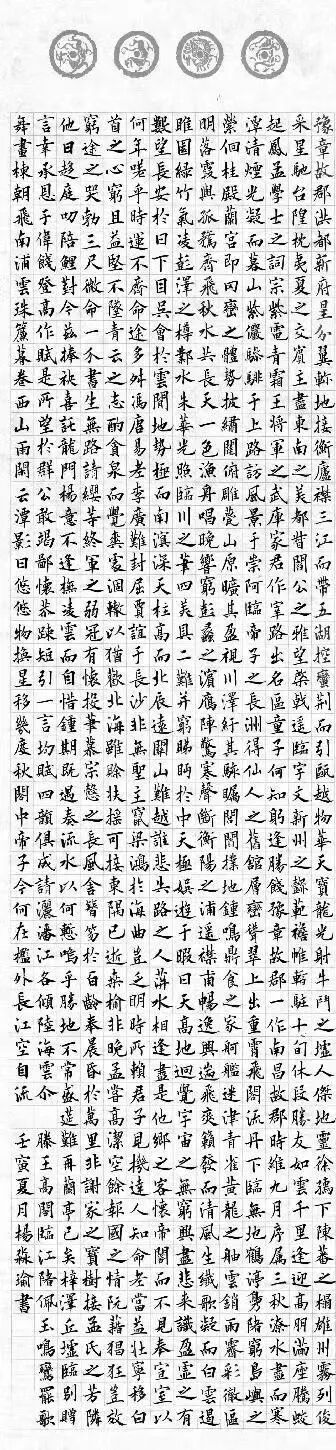 豫章故郡洪都新府星分翼軫地接衡廬襟三江而帶五湖控蠻荊而引甌越物華天寶龍光射牛斗之墟人傑地靈徐孺下陳蕃之榻雄州霧列俊
采星馳臺隍枕夷夏之交賓主盡東南之美都督閻公之雅望棨戟遙臨宇文新州之懿範襜帷暫駐十旬休暇勝友如雲千里逢迎高朋滿座騰蛟
起鳳孟學士之詞宗紫電青霜王將軍之武庫家君作宰路出名區童子何知躬逢勝餞時維九月序屬三秋潦水盡而寒
潭清煙光凝而暮山紫儼驂騑於上路訪風景於崇阿臨帝子之長洲得仙人之舊館層巒聳翠上出重霄飛閣流丹下臨無地鶴汀鳧渚窮島嶼之
縈迴桂殿蘭宮即岡巒之體勢披繡闥俯雕甍山原曠其盈視川澤紆其駭矚閭閻撲地鐘鳴鼎食之家舸艦迷津青雀黃龍之舳雲銷雨霽彩徹區
明落霞與孤鶩齊飛秋水共長天一色漁舟唱晚響窮彭蠡之濱雁陣驚寒聲斷衡陽之浦遙襟甫暢逸興遄飛爽籟發而清風生纖歌凝而白雲遏
睢園綠竹氣凌彭澤之樽鄴水朱華光照臨川之筆四美具二難并窮睇眄於中天極娛遊於暇日天高地迥覺宇宙之無窮興盡悲來識盈虛之有
數望長安於日下目吳會於雲間地勢極而南溟深天柱高而北辰遠關山難越誰悲失路之人萍水相逢盡是他鄉之客懷帝閽而不見奉宣室以
何年嗟乎時運不齊命途多舛馮唐易老李廣難封屈賈誼於長沙非無聖主竄梁鴻於海曲豈乏明時所賴君子見機達人知命老當益壯寧移白
首之心窮且益堅不墜青雲之志酌貪泉而覺爽處涸轍以猶歡北海雖賒扶搖可接東隅已逝桑榆非晚孟嘗高潔空餘報國之情阮藉猖狂豈效
窮途之哭勃三尺微命一介書生無路請纓等終軍之弱冠有懷投筆慕宗愨之長風舍簪笏於百齡奉晨昏於萬里非謝家之寶樹接孟氏之芳鄰
他日趨庭叨陪鯉對今茲捧袂喜託龍門楊意不逢撫凌雲而自惜鍾期既遇奏流水以何慚嗚乎勝地不常盛筵難再蘭亭已矣梓澤丘墟臨別贈
言幸承恩於偉餞登高作賦是所望於群公敢竭鄙懷恭疏短引一言均賦四韻俱成請灑潘江各傾陸海云爾 滕王高閣臨江渚佩玉鳴鸞罷歌
舞畫棟朝飛南浦雲珠簾暮卷西山雨閒雲潭影日悠悠物換星移幾度秋閣中帝子今何在檻外長江空自流 壬寅夏月楊淼瑜書